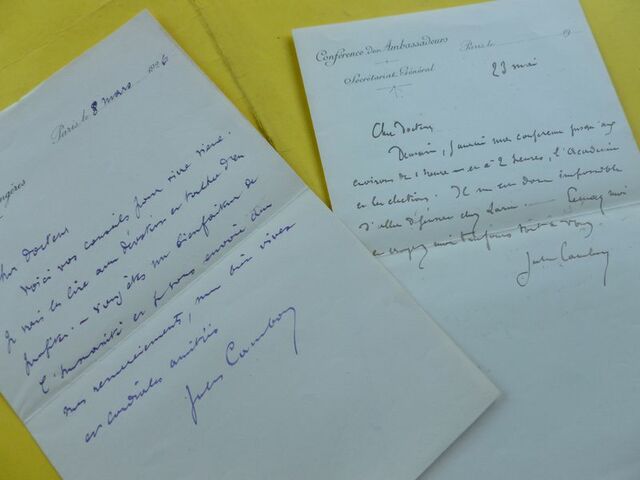 ngères
Paris, le 8 mars 1926
Cher docteur
Voici vos conseils pour vivre vieux.
Je vais les lire avec dévotion et tâcher d'en
profiter. — Vous êtes un bienfaiteur de
l'humanité et je vous envoie avec
mes remerciements, mes bien vives
et cordiales amitiés
Jules Cambon
Conférence des Ambassadeurs
Secrétariat Général
Paris, le 19
23 mai
Cher Docteur
Demain, j'aurai ma conférence jusqu'aux
environs de 1 heure — et à 2 heures, l'Académie
et les élections. Il m'est donc impossible
d'aller déjeuner chez
et croyez moi toujours tout à vous.
Jules Cambon